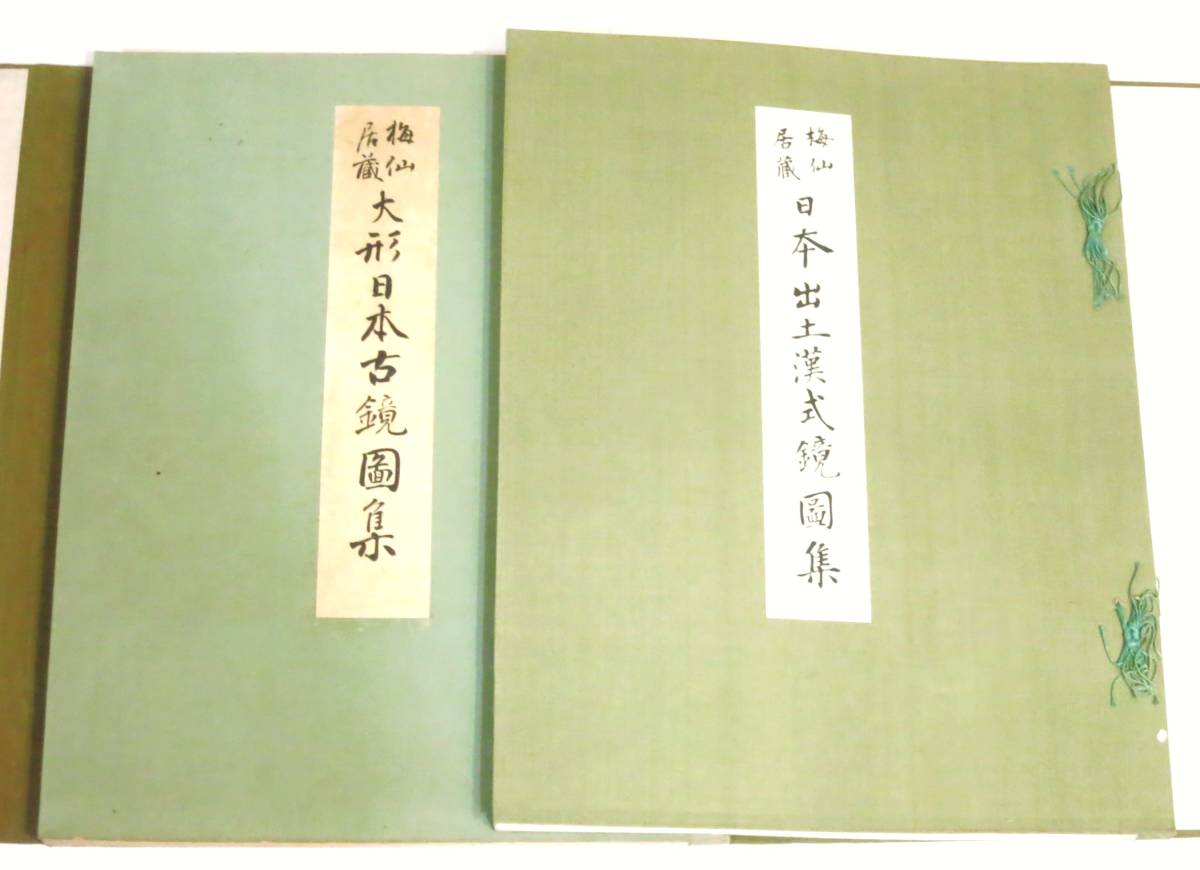 梅仙
居蔵
日本出土漢式鏡圖集
梅仙
居蔵
大形日本古鏡圖集